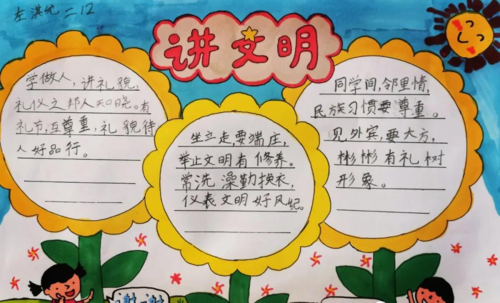 左洪 二12
讲文明
学做人，讲礼貌，
礼仪之邦人知晓。有
礼节，互尊重，礼貌待
人好品行。
坐立走，要端庄，
举止文明有修养。
常洗澡勤换衣，
仪表文明好风纪。
同学间，邻里情，
民族习惯要尊重。
见外宾，要大方，
彬彬有礼树
形象。
谢谢